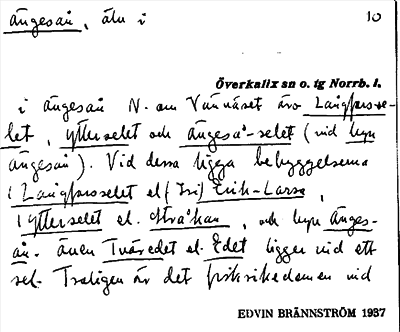 ängesån, älv i 10
Överkalix sn o. tg Norrb. l.
i ängesån N. om Vännäset äro Långforsse-
let, ytterselet och ängeså-selet (vid byn
ängesån). Vid dessa ligga bebyggelserna
i Långforsselet el (Tri) Erik-Larsa,
i ytterselet el. Stråkan, och byn änges-
ån. även Tväredet el. Edet ligger vid ett
sel. Troligen är det fiskrikedomen vid
EDVIN BRÄNNSTRÖM 1937